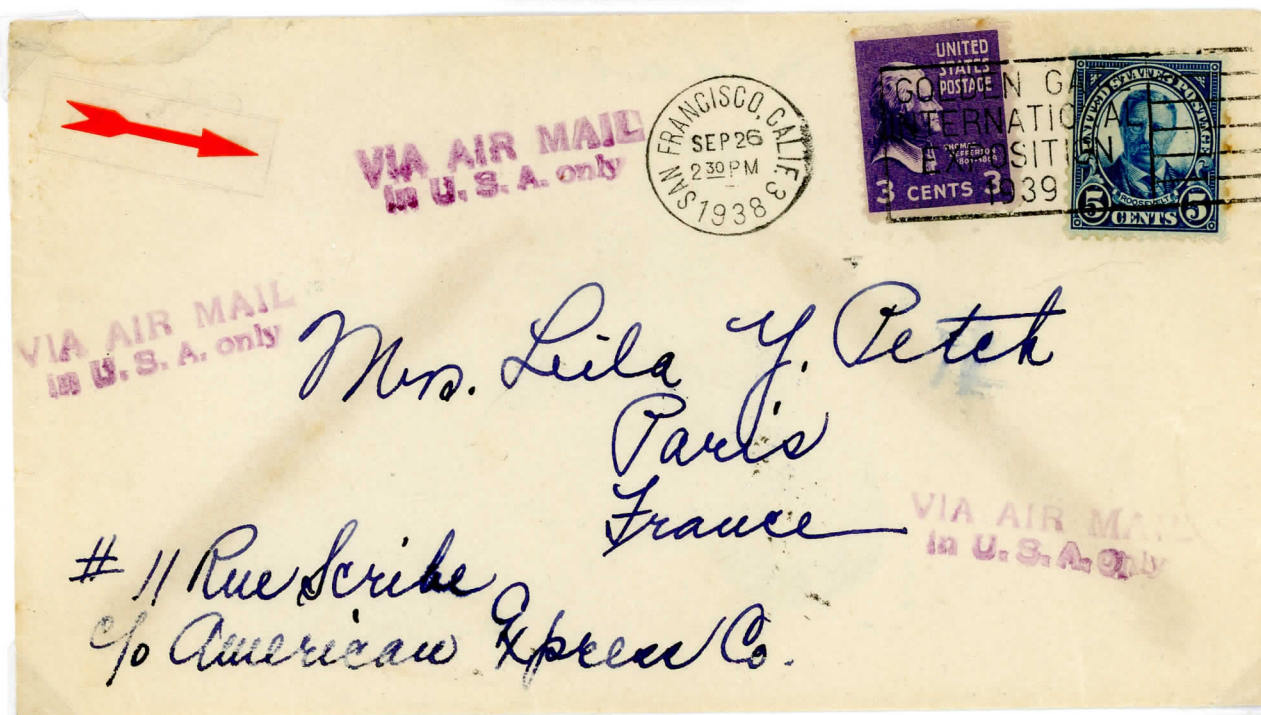 VIA AIR MAIL
in U. S. A. only
SAN FRANCISCO, CALIF. 3
SEP 26
2 30 PM
1938
UNITED
STATES
POSTAGE
THOMAS
JEFFERSON
1801-1809
3 CENTS 3
GOLDEN GATE
INTERNATIONAL
EXPOSITION
1939
UNITED STATES POSTAGE
ROOSEVELT
5 CENTS 5
VIA AIR MAIL
in U. S. A. only
Mrs. Leila Y. Petch
Paris
France
VIA AIR MAIL
in U. S. A. only
# 11 Rue Scribe
c/o American Express Co.